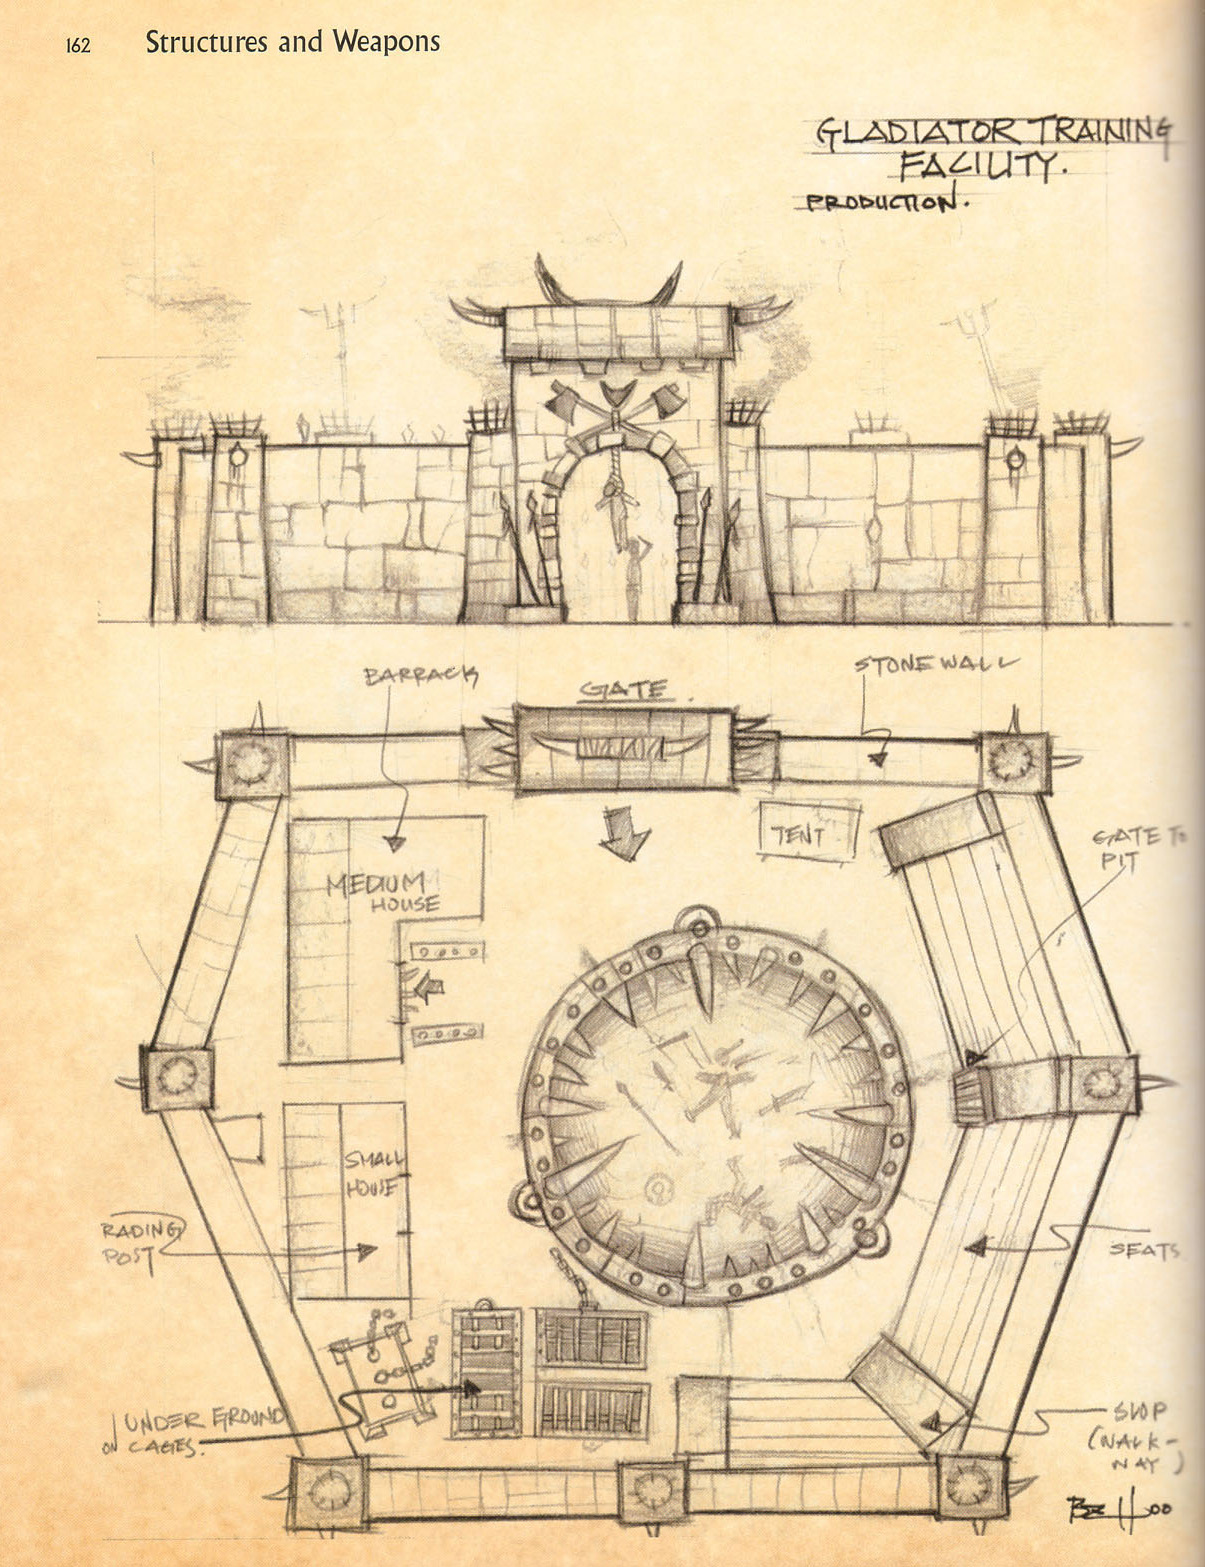 162 Structures and Weapons
GLADIATOR TRAINING
FACILITY.
PRODUCTION.
BARRACK
GATE
STONE WALL
TENT
GATE TO
PIT
MEDIUM
HOUSE
SMALL
HOUSE
RADING
POST
SEATS
UNDER GROUND
ON CAGES.
SLOP
(WALK-
WAY)